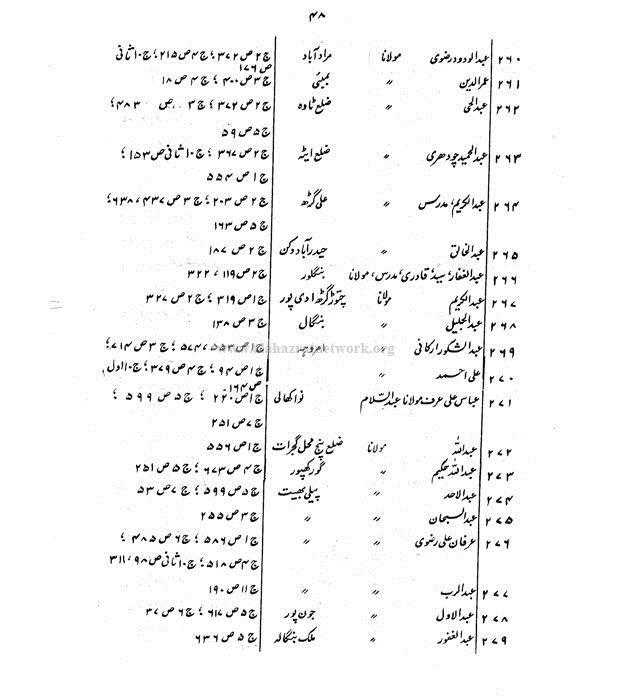 ۴۸
۲۶۰ عبدالودود رضوی مولانا مرادآباد ج ۲ ص ۳۷۲ ؛ ج ۴ ص ۲۱۵ ؛ ج ۱۰ ثانی
ص ۱۷۶
۲۶۱ عمرالدین // بمبئی ج ۳ ص ۴۰۰ ؛ ج ۴ ص ۱۸
۲۶۲ عبدالحی // ضلع اٹاوہ ج ۲ ص ۳۷۲ ؛ ج ۳ ص ۴۸۳ ؛
ج ۵ ص ۵۹
۲۶۳ عبدالحمید چودھری // ضلع ایٹہ ج ۲ ص ۳۶۷ ؛ ج ۱۰ ثانی ص ۱۵۳ ؛
ج ۱ ص ۵۵۴
۲۶۴ عبدالکریم، مدرس // علی گڑھ ج ۲ ص ۲۰۳ ؛ ج ۳ ص ۴۳۷، ۶۳۸ ؛
ج ۵ ص ۱۶۳
۲۶۵ عبدالخالق // حیدرآباد دکن ج ۲ ص ۱۸۷
۲۶۶ عبدالغفار، سید، قادری، مدرس، مولانا بنگلور ج ۲ ص ۱۱۹، ۳۲۲
۲۶۷ عبدالکریم مولانا چتوڑ گڑھ اودی پور ج ۱ ص ۳۱۹ ؛ ج ۲ ص ۳۲۷
۲۶۸ عبدالجلیل // بنگال ج ۳ ص ۱۳۸
۲۶۹ عبدالشکور ارکانی // ج ۱ ص ۵۵۳، ۵۷۴ ؛ ج ۳ ص ۷۱۴ ؛
۲۷۰ علی احمد // ج ۱ ص ۹۴ ؛ ج ۴ ص ۳۷۹ ؛ ج ۱۰ اول
ص ۱۶۴
۲۷۱ عباس علی عرف مولانا عبدالسلام نواکھالی ج ۱ ص ۲۲۰ ؛ ج ۵ ص ۵۹۹ ؛
ج ۷ ص ۲۵۱
۲۷۲ عبداللہ مولانا ضلع پنج محل گجرات ج ۱ ص ۵۵۶
۲۷۳ عبداللہ حکیم // گورکھپور ج ۴ ص ۶۷۳ ؛ ج ۵ ص ۲۵۱
۲۷۴ عبدالاحد // پیلی بھیت ج ۵ ص ۵۹۹ ؛ ج ۷ ص ۵۳
۲۷۵ عبدالسبحان // // ج ۳ ص ۲۵۵
۲۷۶ عرفان علی رضوی // // ج ۱ ص ۵۸۶ ؛ ج ۶ ص ۴۸۵ ؛
ج ۴ ص ۵۱۸ ؛ ج ۱۰ ثانی ص ۹۸، ۳۱۱
۲۷۷ عبدالرب // // ج ۱۱ ص ۱۹۰
۲۷۸ عبدالاول // جون پور ج ۵ ص ۶۱۷ ؛ ج ۶ ص ۳۷
۲۷۹ عبدالغفور // ملک بنگالہ ج ۵ ص ۶۳۶